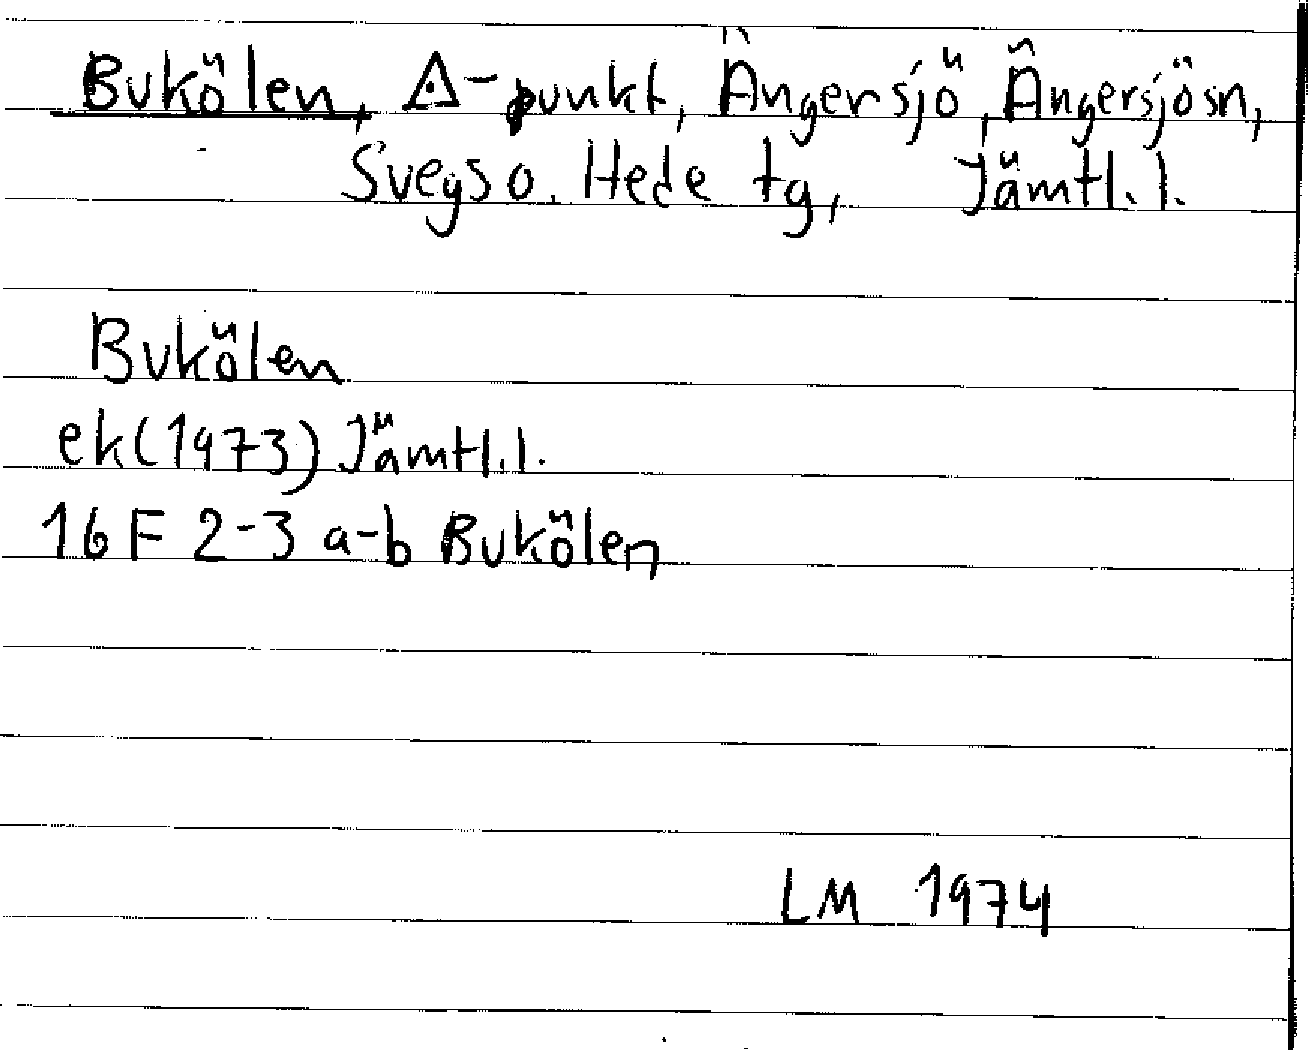 Bukölen, △-punkt, Ängersjö, Ängersjösn,
Svegs o. Hede tg, Jämtl. l.
Bukölen
ek (1973) Jämtl. l.
16 F 2-3 a-b Bukölen
LM 1974